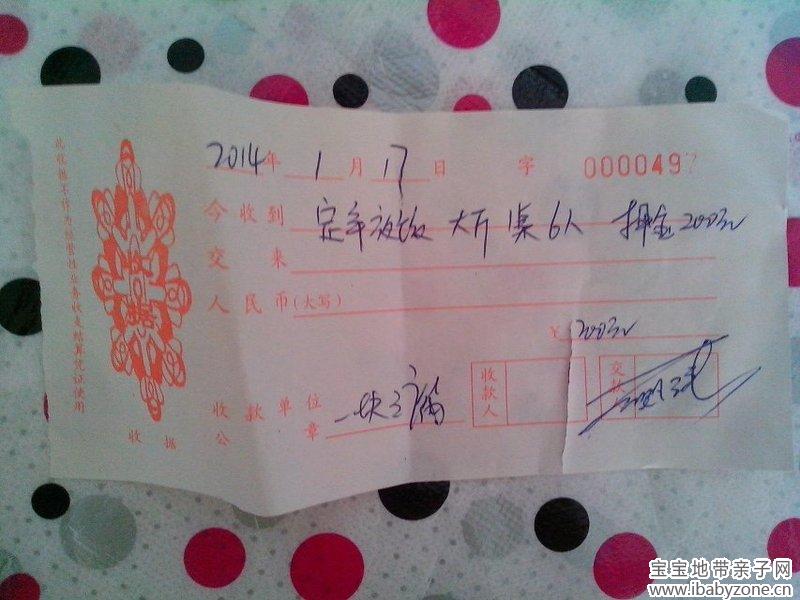 2014年 1 月 17 日 字 0000497
今收到 定年夜饭 大厅 桌 6人 押金200元
交来
人民币(大写)
¥ 200元
收款单位
公章
收款人
交款人
此收据不作为经营性业务收支结算凭证使用
收据
宝宝地带亲子网
www.ibabyzone.cn